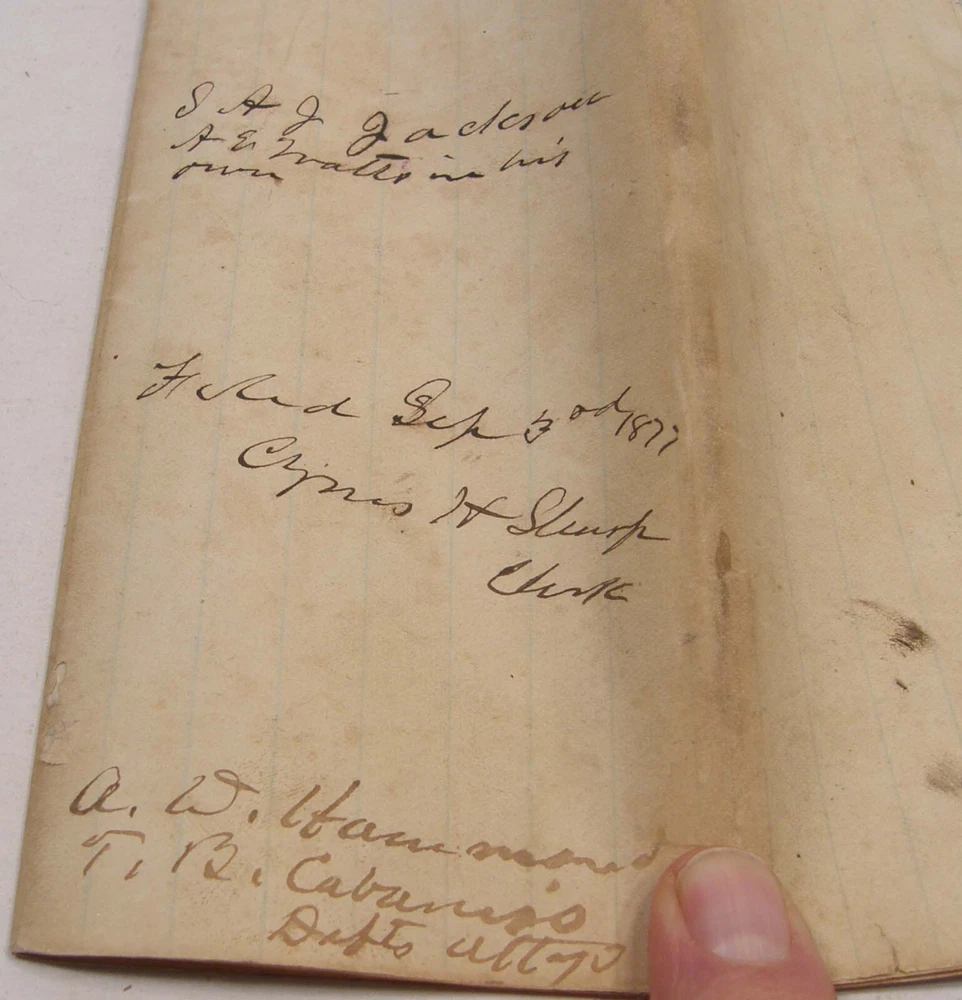 S A J Jackson
A E Wattsin his
own
Filed Sep 3rd 1877
Cyrus H Sharp
Clerk
A. W. Hammond
T. B. Cabaniss
Defts attys